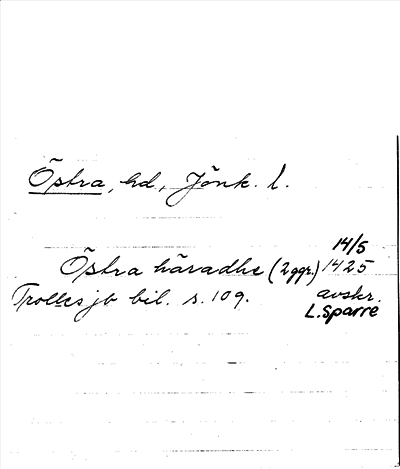 Östra, hd, Jönk. l.
14/5
Östra häradhe (2 ggr.) 1425
Trolles jb bil. s. 109. avskr.
L. Sparre